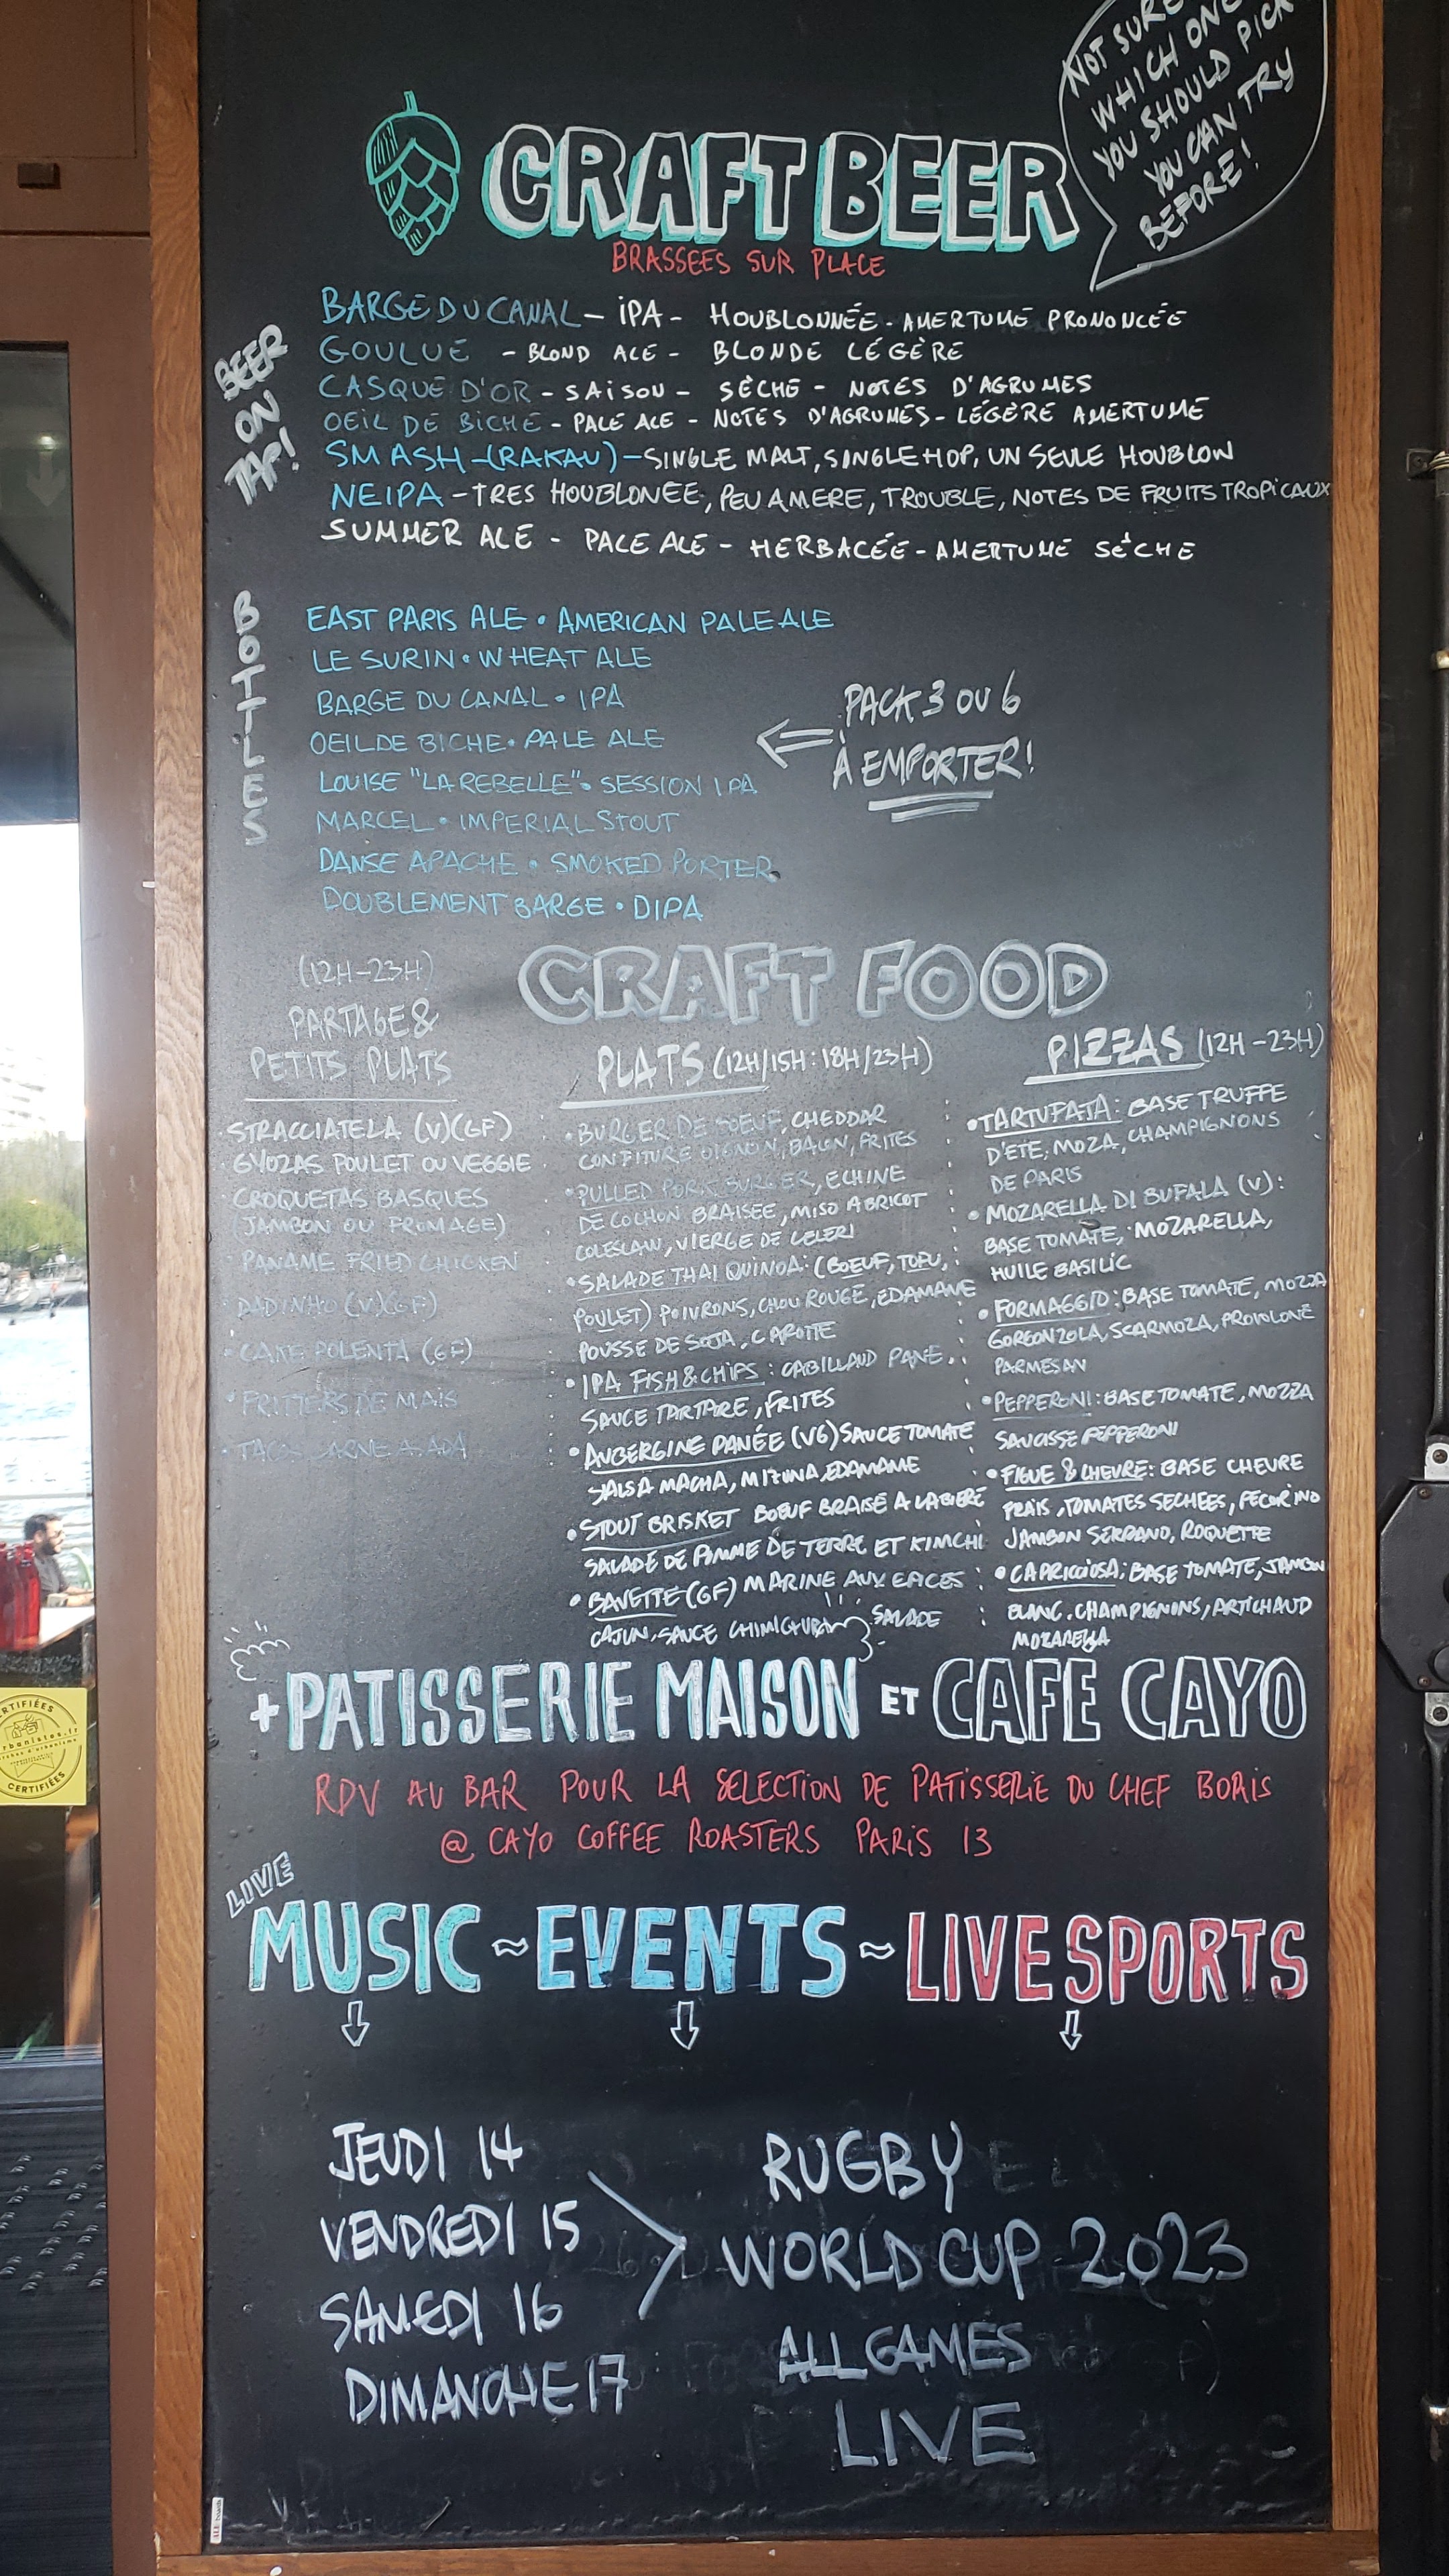 NOT SURE
WHICH ONE
YOU SHOULD PICK
YOU CAN TRY
BEFORE!
CRAFT BEER
BRASSEES SUR PLACE
BEER
ON
TAP!
BARGE DU CANAL - IPA - HOUBLONNÉE - AMERTUME PRONONCÉE
GOULUE - BLOND ALE - BLONDE LÉGÈRE
CASQUE D'OR - SAISON - SÈCHE - NOTES D'AGRUMES
OEIL DE BICHE - PALE ALE - NOTES D'AGRUMES - LÉGÈRE AMERTUME
SMASH-(RAKAU)-SINGLE MALT, SINGLE HOP, UN SEULE HOUBLON
NEIPA - TRES HOUBLONEE, PEU AMERE, TROUBLE, NOTES DE FRUITS TROPICAUX
SUMMER ALE - PALE ALE - HERBACÉE - AMERTUME SÈCHE
BOTTLES
EAST PARIS ALE • AMERICAN PALE ALE
LE SURIN • WHEAT ALE
BARGE DU CANAL • IPA
OEIL DE BICHE • PALE ALE
LOUISE "LA REBELLE" • SESSION IPA
MARCEL • IMPERIAL STOUT
DANSE APACHE • SMOKED PORTER
DOUBLEMENT BARGE • DIPA
PACK 3 OU 6
À EMPORTER!
CRAFT FOOD
(12H-23H)
PARTAGE &
PETITS PLATS
STRACCIATELA (V)(GF)
GYOZAS POULET OU VEGGIE
CROQUETAS BASQUES
(JAMBON OU FROMAGE)
PANAME FRIED CHICKEN
DADINHO (V)(GF)
CAKE POLENTA (GF)
FRITTERS DE MAIS
TACO CARNE ASADA
PLATS (12H/15H : 18H/23H)
• BURGER DE BOEUF, CHEDDAR
CONFITURE OIGNON, BACON, FRITES
• PULLED PORK BURGER, ECHINE
DE COCHON BRAISEE, MISO ABRICOT
COLESLAW, VIERGE DE CELERI
• SALADE THAI QUINOA: (BOEUF, TOFU,
POULET) POIVRONS, CHOU ROUGE, EDAMAME
POUSSE DE SOJA, CAROTTE
• IPA FISH & CHIPS : CABILLAUD PANE,
SAUCE TARTARE, FRITES
• AUBERGINE PANÉE (VG) SAUCE TOMATE
SALSA MACHA, MIZUNA, EDAMAME
• STOUT BRISKET BOEUF BRAISE A LA BIERE
SALADE DE POMME DE TERRE ET KIMCHI
• BAVETTE (GF) MARINE AUX EPICES
CAJUN, SAUCE CHIMICHURRI SALADE
PIZZAS (12H-23H)
• TARTUFATA: BASE TRUFFE
D'ETE, MOZA, CHAMPIGNONS
DE PARIS
• MOZARELLA DI BUFALA (V):
BASE TOMATE, MOZARELLA,
HUILE BASILIC
• FORMAGGIO: BASE TOMATE, MOZZA
GORGONZOLA, SCARMOZA, PROVOLONE
PARMESAN
• PEPPERONI: BASE TOMATE, MOZZA
SAUCISSE PEPPERONI
• FIGUE & CHEVRE: BASE CHEVRE
FRAIS, TOMATES SECHEES, PECORINO
JAMBON SERRANO, ROQUETTE
• CAPRICCIOSA: BASE TOMATE, JAMBON
BLANC, CHAMPIGNONS, ARTICHAUD
MOZARELLA
+ PATISSERIE MAISON ET CAFE CAYO
RDV AU BAR POUR LA SELECTION DE PATISSERIE DU CHEF BORIS
@ CAYO COFFEE ROASTERS PARIS 13
LIVE
MUSIC ~ EVENTS ~ LIVE SPORTS
JEUDI 14
VENDREDI 15
SAMEDI 16
DIMANCHE 17
RUGBY
WORLD CUP 2023
ALL GAMES
LIVE
CERTIFIÉES